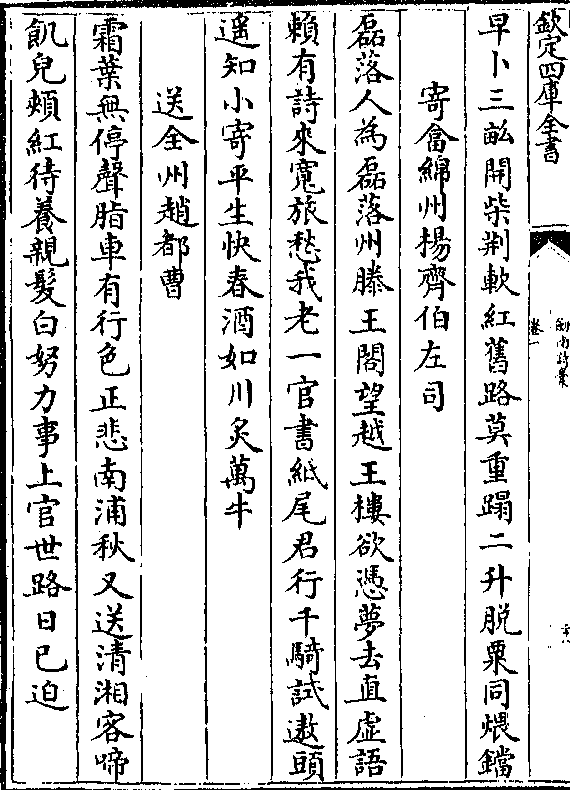 欽定四庫全書
卷一
早卜三畝開柴荆軟紅舊路莫重蹋二升脱粟同煨鐺
寄畣綿州楊齊伯左司
磊落人為磊落州滕王閣望越王樓欲憑夢去直虛語
賴有詩來寬旅愁我老一官書紙尾君行千騎試遨頭
遥知小寄平生快春酒如川炙萬牛
送全州趙都曹
霜葉無停聲脂車有行色正悲南浦秋又送清湘客啼
飢兒頰紅待養親髮白努力事上官世路日已迫